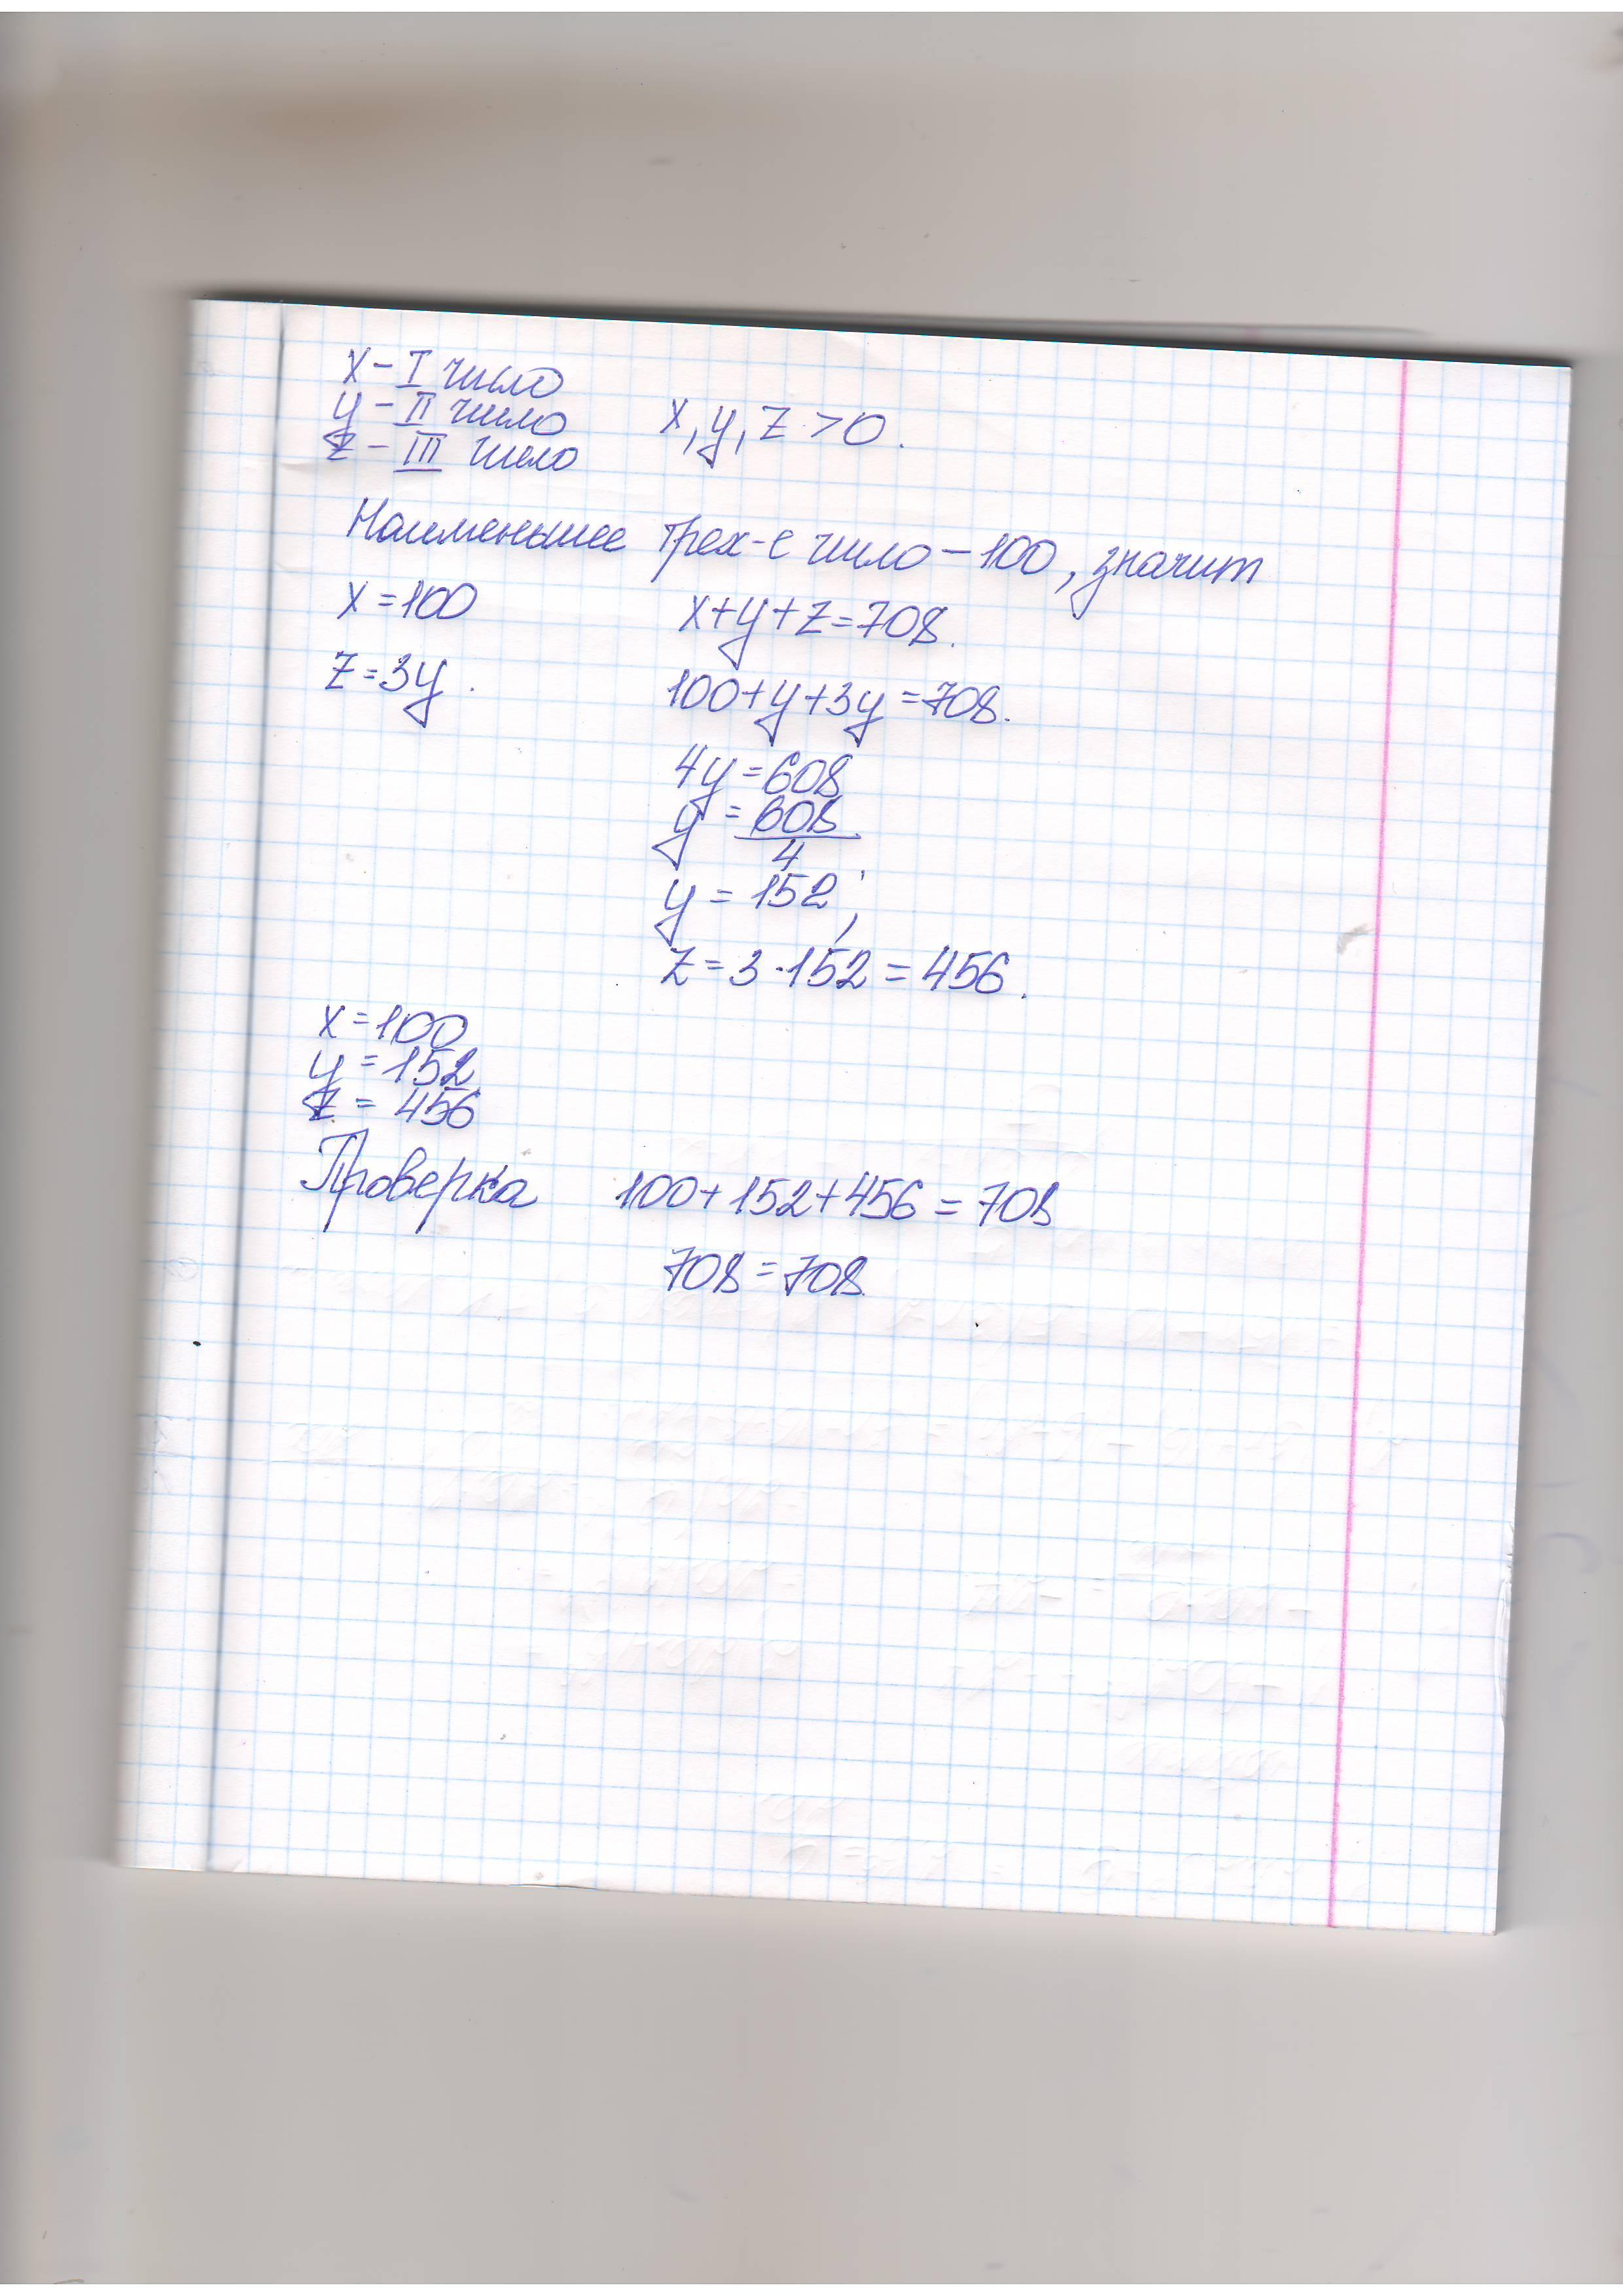 x - I число
y - II число
z - III число
x, y, z > 0.
Наименьшее трех-е число - 100, значит
x = 100
x + y + z = 708.
z = 3y.
100 + y + 3y = 708.
4y = 608
y = 608/4;
y = 152;
z = 3 · 152 = 456.
x = 100
y = 152
z = 456
Проверка 100 + 152 + 456 = 708
708 = 708.